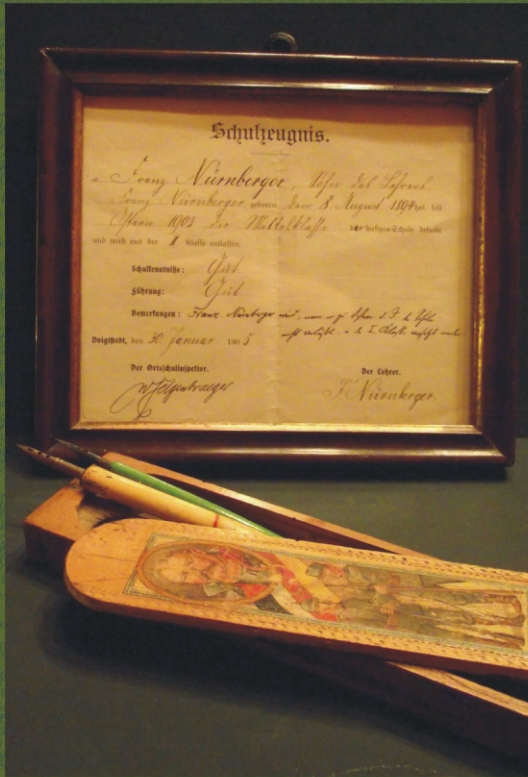 Schulzeugnis.
Franz Nürnberger, Sohn des Lehrers
Franz Nürnberger geboren den 8. August 1894 hat seit
Ostern 1903 die Mittelklasse der hiesigen Schule besucht
und wird aus der II Klasse entlassen.
Schulkenntnisse: Gut
Führung: Gut
Bemerkungen: Franz Nürnberger wird,
Voigtstedt, den 30. Januar 1905
Der Ortsschulinspektor. Der Lehrer.
F. Nürnberger.